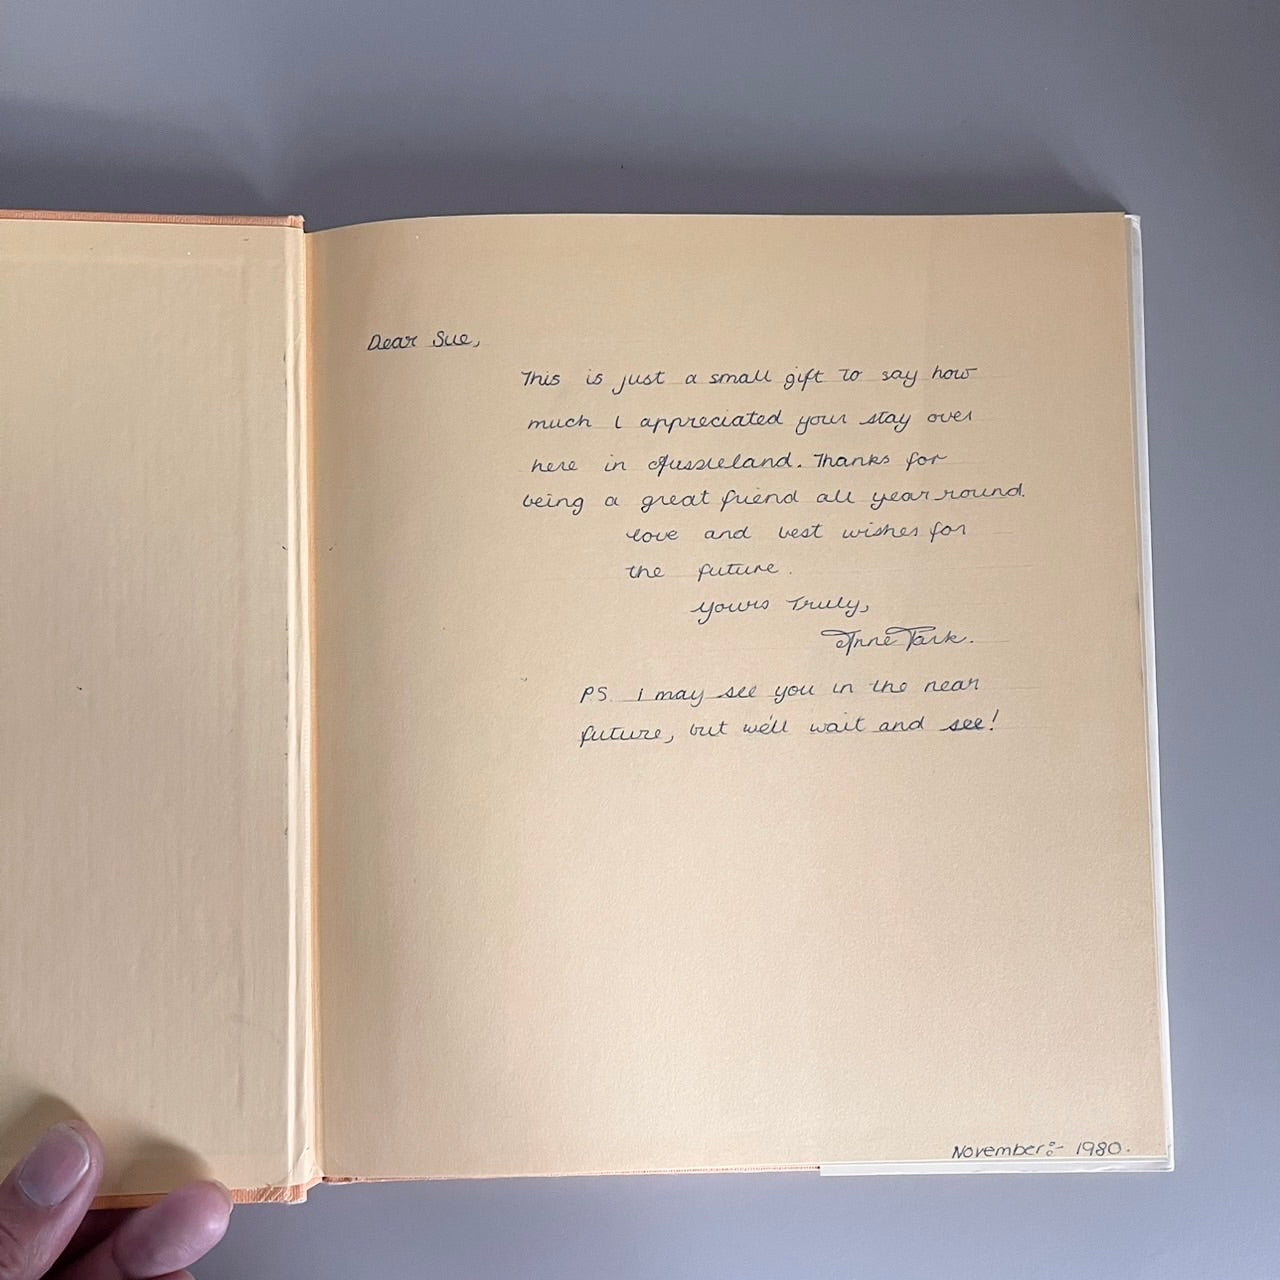 Dear Sue,
This is just a small gift to say how
much I appreciated your stay over
here in Aussieland. Thanks for
being a great friend all year round.
Love and best wishes for
the future.
Yours Truly,
Anne Tark.
P.S. I may see you in the near
future, but we'll wait and see!
November:- 1980.